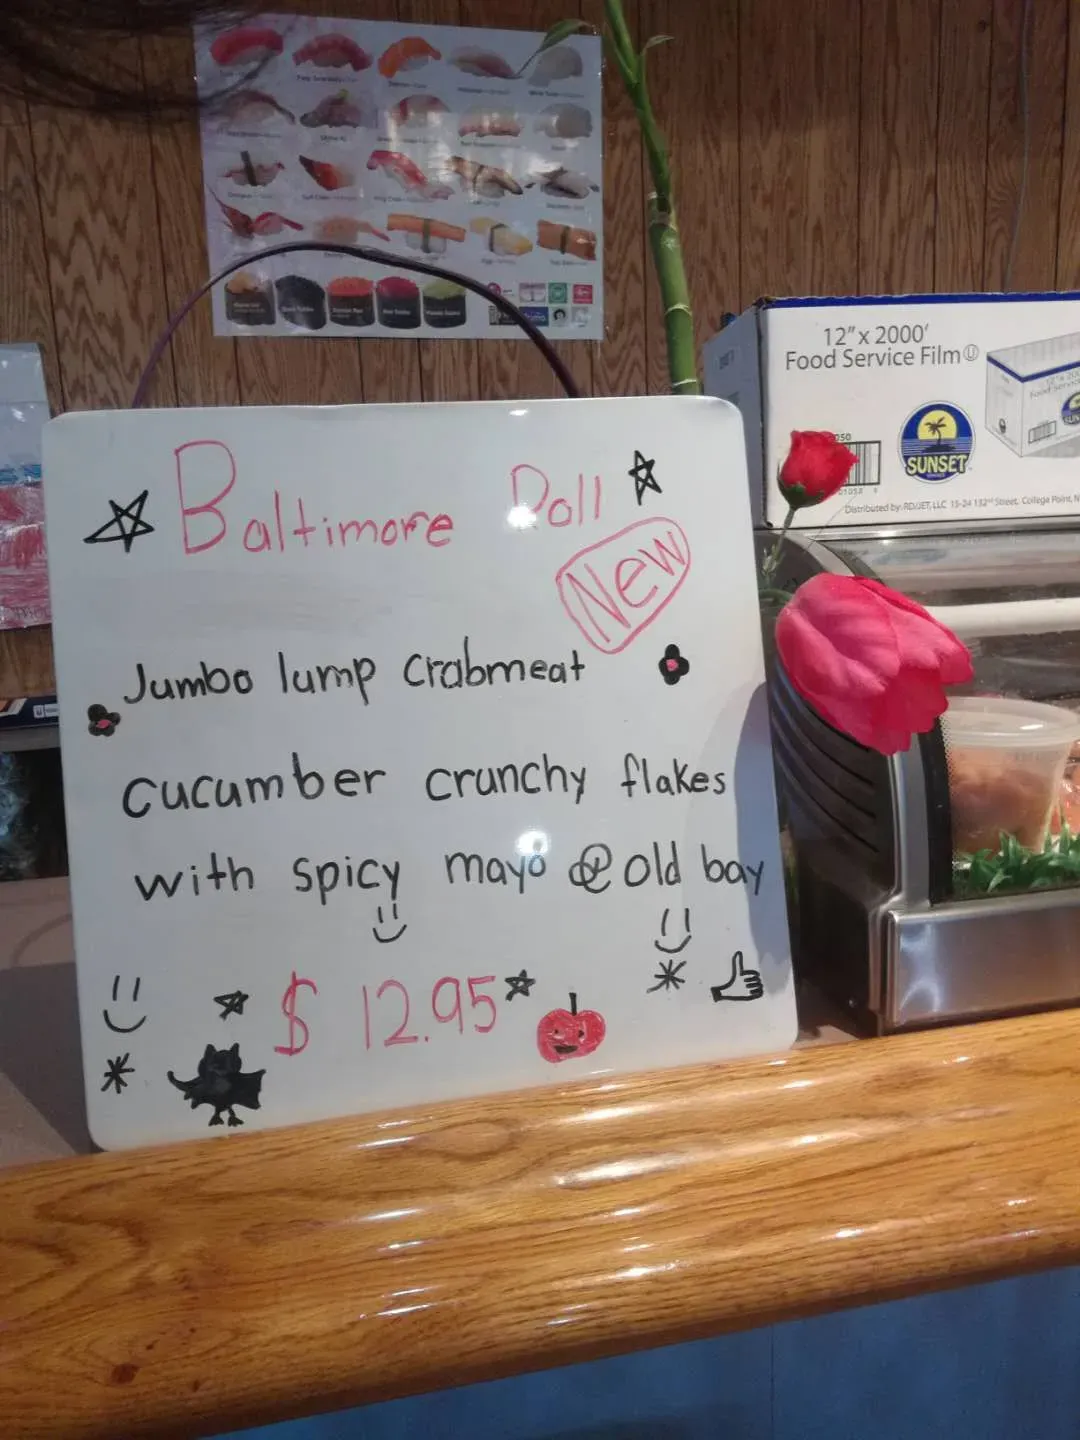 Baltimore Roll
New
Jumbo lump crabmeat
cucumber crunchy flakes
with spicy mayo @ old bay
$ 12.95
12" x 2000'
Food Service Film
SUNSET
Distributed by: RD/JET, LLC 15-24 132nd Street, College Point, N